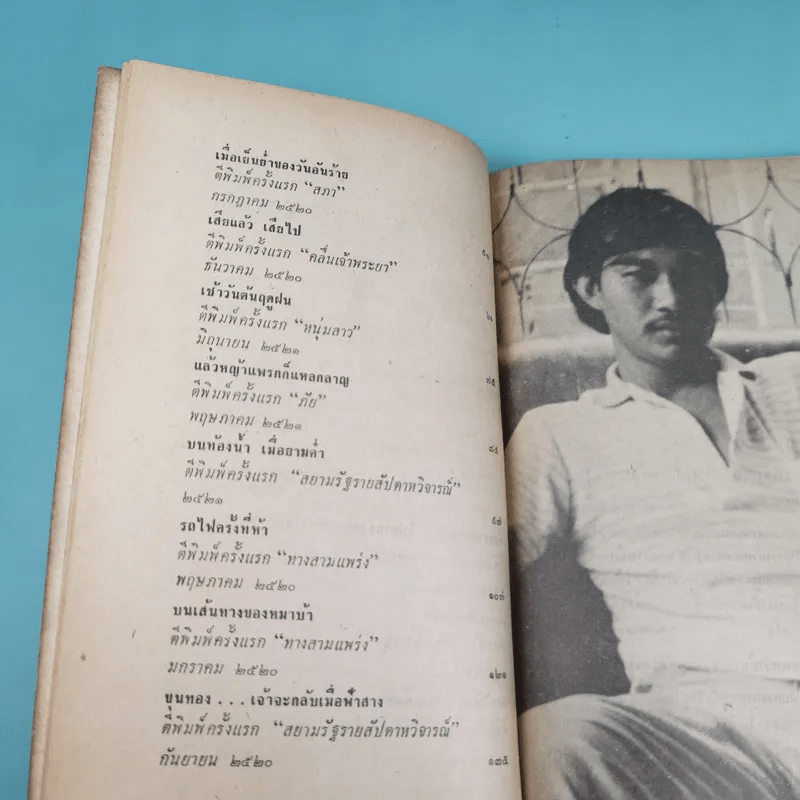 เมื่อเย็นย่ำของวันอันร้าย
ตีพิมพ์ครั้งแรก “สภา”
กรกฎาคม ๒๕๒๐
เสียแล้ว เสียไป
ตีพิมพ์ครั้งแรก “คลื่นเจ้าพระยา”
ธันวาคม ๒๕๒๐
เช้าวันต้นฤดูฝน
ตีพิมพ์ครั้งแรก “หนุ่มสาว”
มิถุนายน ๒๕๒๑
แล้วหญ้าแพรกก็แหลกลาญ
ตีพิมพ์ครั้งแรก “ภัย”
พฤษภาคม ๒๕๒๑
บนท้องน้ำ เมื่อยามค่ำ
ตีพิมพ์ครั้งแรก “สยามรัฐรายสัปดาหวิจารณ์”
๒๕๒๑
รถไฟครั้งที่ห้า
ตีพิมพ์ครั้งแรก “ทางสามแพร่ง”
พฤษภาคม ๒๕๒๐ ๑๐๗
บนเส้นทางของหมาบ้า
ตีพิมพ์ครั้งแรก “ทางสามแพร่ง”
มกราคม ๒๕๒๐ ๑๒๑
ขุนทอง . . . เจ้าจะกลับเมื่อฟ้าสาง
ตีพิมพ์ครั้งแรก “สยามรัฐรายสัปดาหวิจารณ์”
กันยายน ๒๕๒๐ ๑๓๕